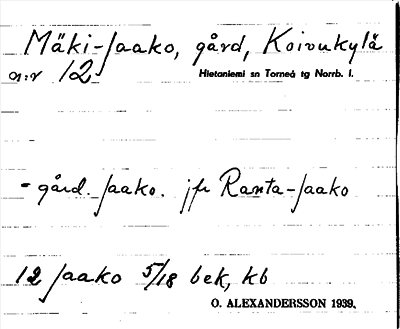 Mäki-Jaako, gård, Koivukylä
n:r 12 Hietaniemi sn Torneå tg Norrb. l.
- gård. Jaako. jfr Ranta-Jaako
12 Jaako 5/18 bek, kb
O. ALEXANDERSSON 1939.